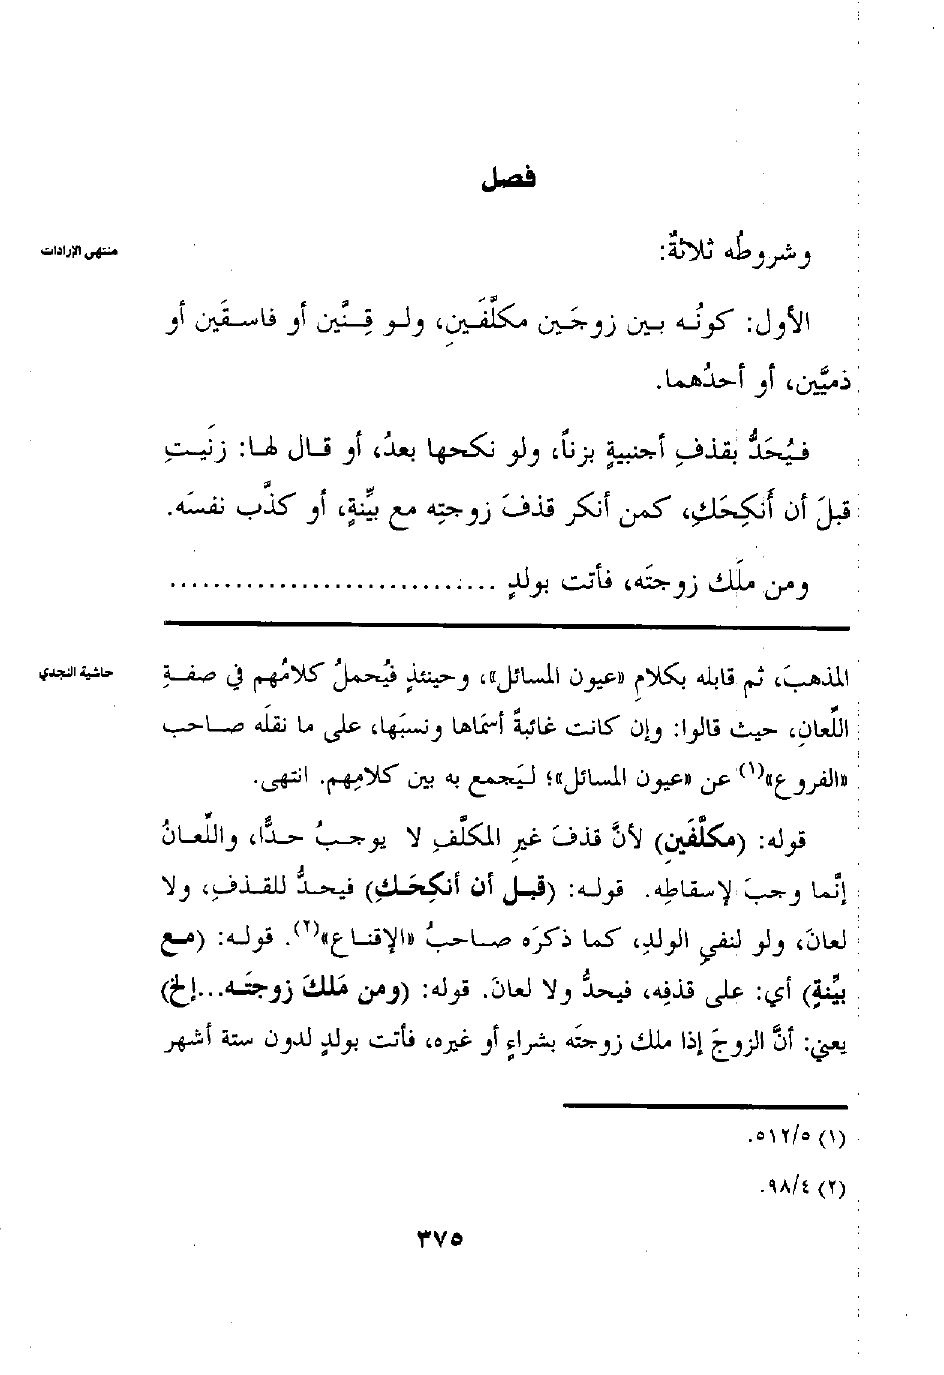 فصل
منتهى الإرادات
وشروطُه ثلاثةٌ:
الأول: كونُه بين زوجَين مكلَّفَينِ، ولو قِنَّين أو فاسقَين أو
ذميَّين، أو أحدُهما.
فيُحَدُّ بقذفِ أجنبيةٍ بزناً، ولو نكحها بعدُ، أو قال لها: زنَيتِ
قبلَ أن أَنكِحَكِ، كمن أنكر قذفَ زوجتِه مع بيِّنةٍ، أو كذَّب نفسَه.
ومن ملَك زوجتَه، فأتت بولدٍ ..............................
حاشية النجدي
المذهبَ، ثم قابله بكلامِ «عيون المسائل»، وحينئذٍ فيُحملُ كلامُهم في صفةِ
اللِّعانِ، حيث قالوا: وإن كانت غائبةً أسماها ونسبَها، على ما نقلَه صاحب
«الفروع»(١) عن «عيون المسائل»؛ ليَجمع به بين كلامِهم. انتهى.
قوله: (مكلَّفَينِ) لأنَّ قذفَ غيرِ المكلَّفِ لا يوجبُ حدًّا، واللِّعانُ
إنَّما وجبَ لإسقاطِه. قوله: (قبل أن أنكِحَكِ) فيحدُّ للقذفِ، ولا
لعانَ، ولو لنفي الولدِ، كما ذكرَه صاحبُ «الإقناع»(٢). قوله: (مع
بيِّنةٍ) أي: على قذفِه، فيحدُّ ولا لعانَ. قوله: (ومن مَلكَ زوجتَه...إلخ)
يعني: أنَّ الزوجَ إذا ملك زوجتَه بشراءٍ أو غيره، فأتت بولدٍ لدون ستة أشهر
(١) ٥١٢/٥.
(٢) ٩٨/٤.
٣٧٥